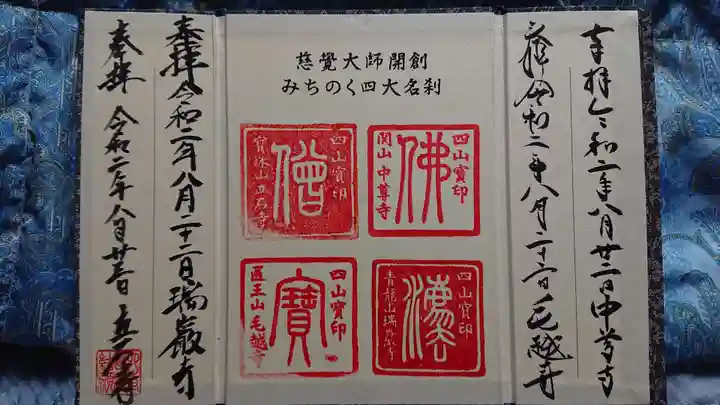 慈覺大師開創
みちのく四大名刹
奉拝 令和二年八月廿二日 中尊寺
奉拝 令和二年八月二十二日 毛越寺
四山寶印
佛
関山 中尊寺
四山寶印
僧
寳珠山立石寺
四山寶印
法
青龍山瑞巌寺
四山寶印
寶
医王山 毛越寺
奉拝 令和二年八月二十二日 瑞巌寺
奉拝 令和二年八月廿三日 立石寺